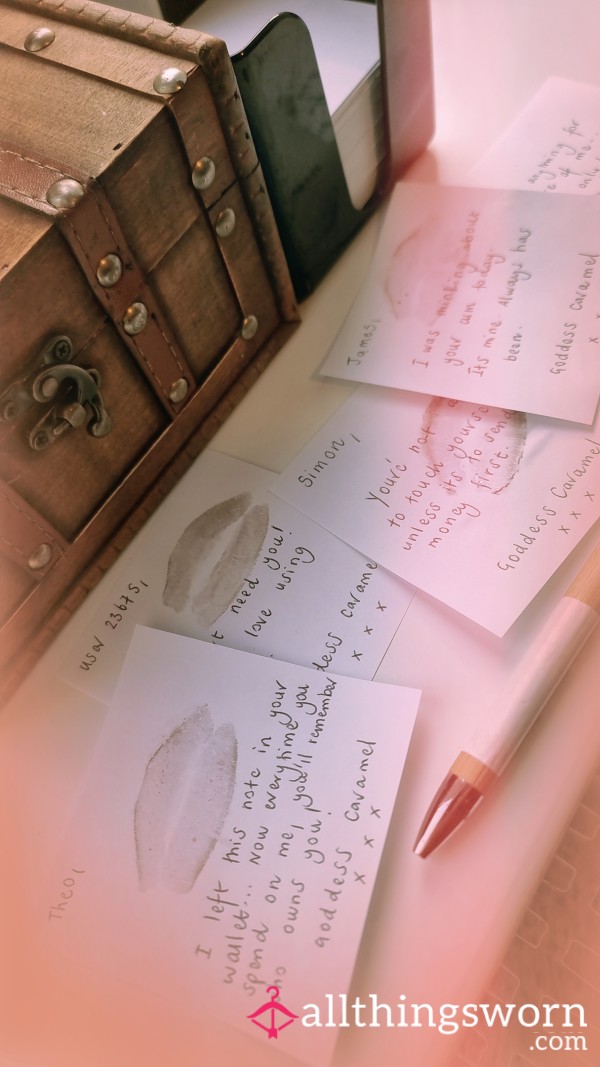 anything for
of me..
only
James,
I was thinking about
your cum today.
Its mine. Always has
been.
Goddess Caramel
x x
Simon,
You're not
to touch
unless its to send
money first.
Goddess Caramel
x x x
user 23675,
need you!
love using
x x x
Theo,
I left this note in your
wallet... Now everytime you
spend on me, you'll remember
who owns you!
Goddess Caramel
x x x
allthingsworn
.com